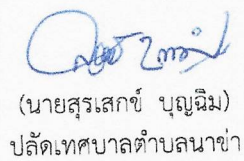 (นายสุรเสกข์ บุญฉิม)
ปลัดเทศบาลตำบลนาข่า